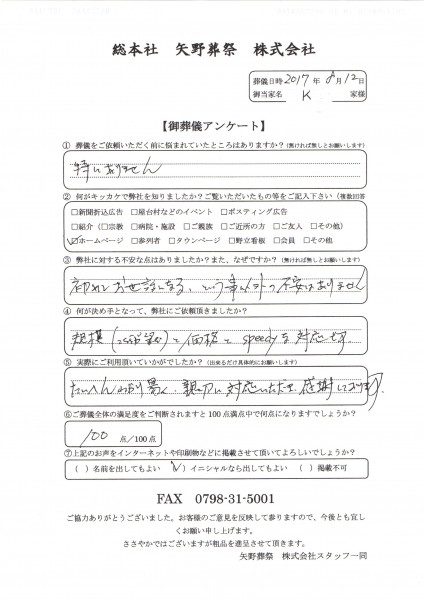 総本社 矢野葬祭 株式会社
葬儀日時 2017 年 8月 12日
御当家名 K 家様
【御葬儀アンケート】
① 葬儀をご依頼いただく前に悩まれていたところはありますか?(無ければ無しとお願いします)
特にありません
② 何がキッカケで弊社を知りましたか?ご覧いただいたもの等をご記入下さい(複数回答
□新聞折込広告 □屋台村などのイベント □ポスティング広告
□紹介(□宗教 □病院・施設 □ご親族 □ご近所の方 □ご友人 □その他)
☑ホームページ □参列者 □タウンページ □野立看板 □会員 □その他
③ 弊社に対する不安な点はありましたか?また、なぜですか?(無ければ無しとお願いします)
初めてお世話になる、という事以外の不安はありません
④ 何が決め手となって、弊社にご依頼頂きましたか?
規模(ご希望)と価格と speedyな対応です。
⑤ 実際にご利用頂いていかがでしたか?(出来るだけ具体的にお願いします)
たいへん わかり易く、親切に対応いただき感謝しております。
⑥ご葬儀全体の満足度をご判断されますと 100 点満点中で何点になりますでしょうか?
100 点/100 点
⑦上記のお声をインターネットや印刷物などに掲載させて頂いてよろしいでしょうか?
( )名前を出してもよい (✓)イニシャルなら出してもよい ( )掲載不可
FAX 0798-31-5001
ご協力ありがとうございました。お客様のご意見を反映して参りますので、今後とも宜し
くお願い申し上げます。
ささやかではございますが粗品を進呈させて頂きます。
矢野葬祭 株式会社スタッフ一同